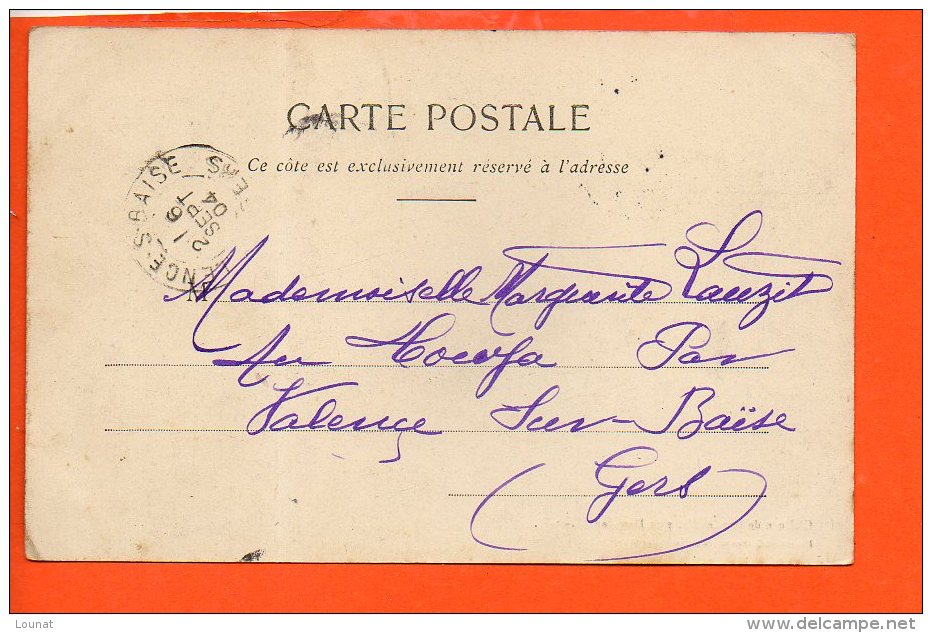 CARTE POSTALE
Ce côte est exclusivement réservé à l'adresse
VALENCE-S-BAISE GERS
16
SEPT
04
M
Mademoiselle Marguerite Lauzit
Au Par
Valence Sur-Baïse
(Gers)
Lounat
www.delcampe.net